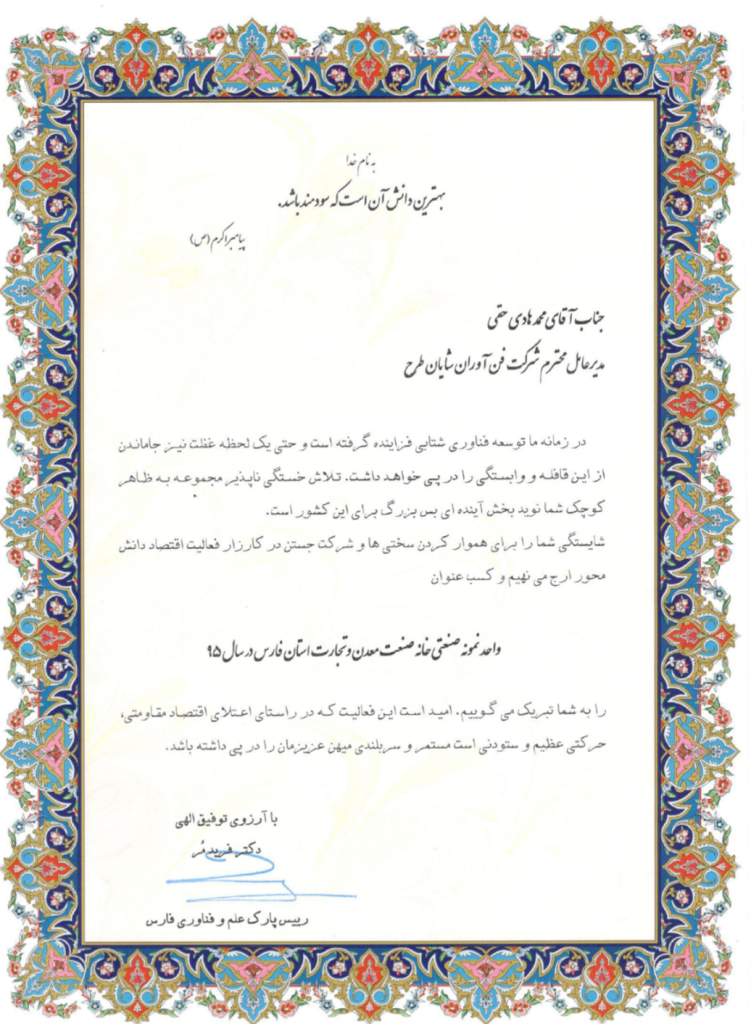 به نام خدا
بهترین دانش آن است که سودمند باشد.
پیامبر اکرم (ص)
جناب آقای محمد هادی حقی
مدیرعامل محترم شرکت فن آوران شایان طرح
در زمانه ما توسعه فناوری شتابی فزاینده گرفته است و حتی یک لحظه غفلت نیز جاماندن
از این قافله و وابستگی را در پی خواهد داشت. تلاش خستگی ناپذیر مجموعه به ظاهر
کوچک شما نوید بخش آینده ای بس بزرگ برای این کشور است.
شایستگی شما را برای هموار کردن سختی ها و شرکت جستن در کارزار فعالیت اقتصاد دانش
محور ارج می نهیم و کسب عنوان
واحد نمونه صنعتی خانه صنعت معدن و تجارت استان فارس در سال ۹۵
را به شما تبریک می گوییم. امید است این فعالیت که در راستای اعتلای اقتصاد مقاومتی،
حرکتی عظیم و ستودنی است مستمر و سربلندی میهن عزیزمان را در پی داشته باشد.
با آرزوی توفیق الهی
دکتر فرید مُر
رییس پارک علم و فناوری فارس